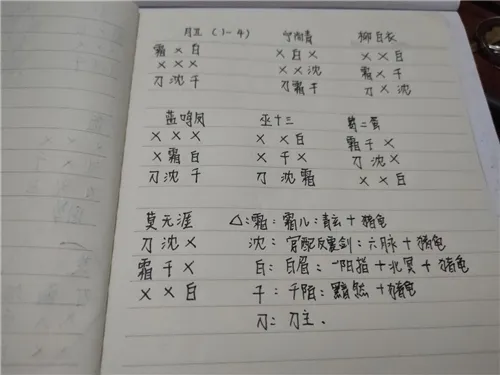 月瓦（1-4） 宁向青 柳白衣
霜×白 ×白× ××白
××× ××沈 霜×千
刀沈千 刀霜千 刀×沈
蓝鸣凤 巫十三 葛二蛮
××× ××白 霜千×
×霜白 ×千× 刀沈×
刀沈千 刀沈霜 ××白
莫无涯 △:霜:霜儿:青玄+猪龟
刀沈× 沈:官配反震剑:六脉+猪龟
霜千× 白:白眉:一阳指+北冥+猪龟
××白 千:千陌:黯然+猪龟
刀:刀主.